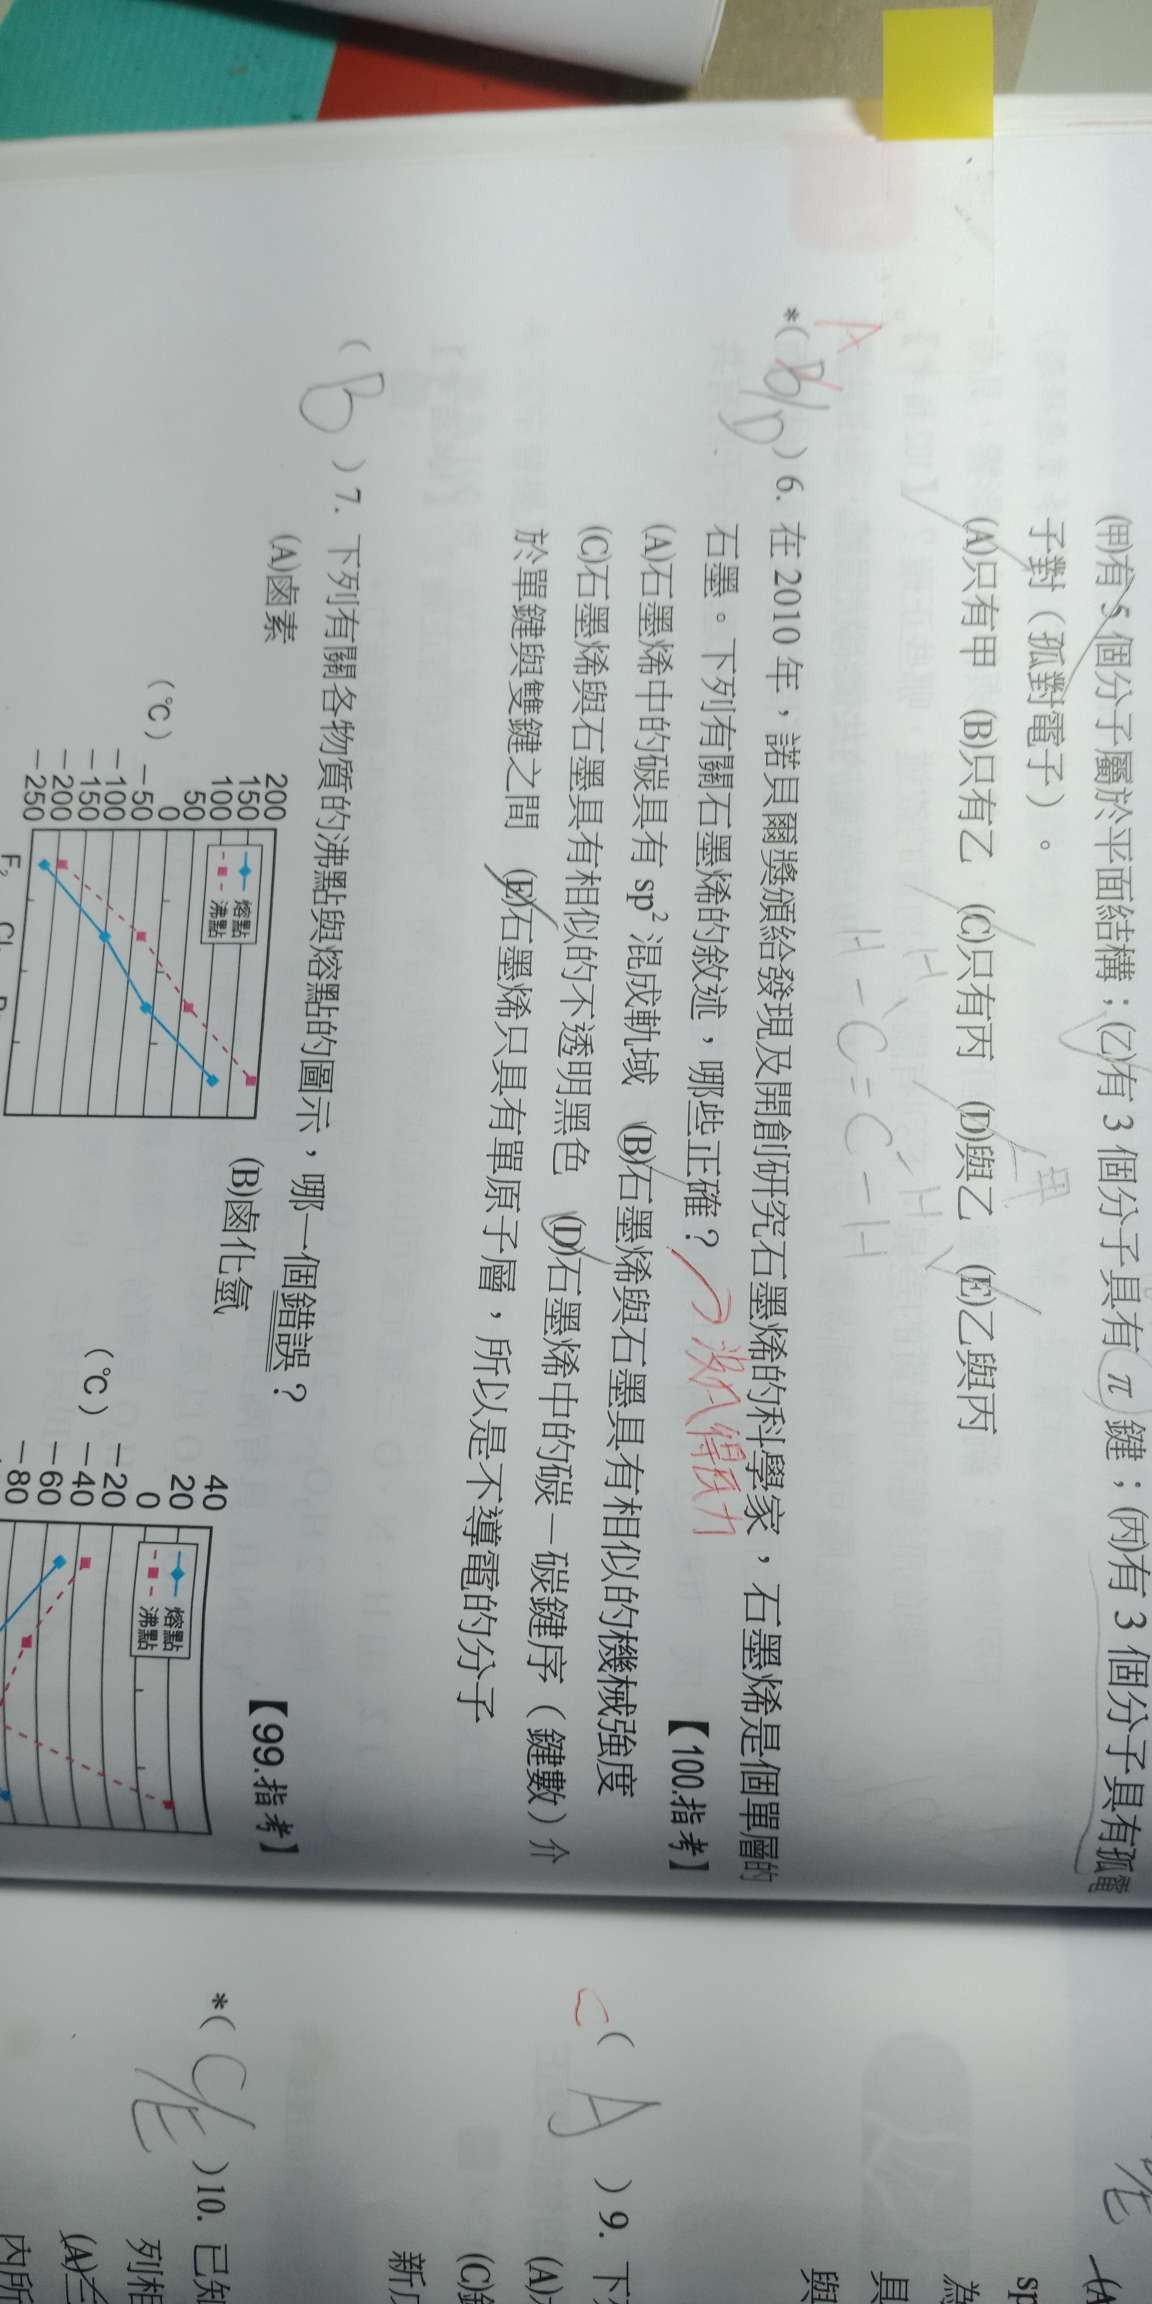 (甲)有 5 個分子屬於平面結構；(乙)有 3 個分子具有 π 鍵；(丙)有 3 個分子具有孤電
子對（孤對電子）。
(A)只有甲 (B)只有乙 (C)只有丙 (D)與乙 (E)乙與丙
甲
H H
H－C＝C－H
A
*( B/D ) 6. 在 2010 年，諾貝爾獎頒給發現及開創研究石墨烯的科學家，石墨烯是個單層的
石墨。下列有關石墨烯的敘述，哪些正確？ 【100.指考】
(A)石墨烯中的碳具有 sp² 混成軌域 (B)石墨烯與石墨具有相似的機械強度
(C)石墨烯與石墨具有相似的不透明黑色 (D)石墨烯中的碳－碳鍵序（鍵數）介
於單鍵與雙鍵之間 (E)石墨烯只具有單原子層，所以是不導電的分子
( B ) 7. 下列有關各物質的沸點與熔點的圖示，哪一個錯誤？ 【99.指考】
(A)鹵素
(℃)
200
150
100
50
0
－50
－100
－150
－200
－250
熔點
沸點
F₂
(B)鹵化氫
(℃)
40
20
0
－20
－40
－60
－80
熔點
沸點
sp
為
具
與
C
( A ) 9. 下
(A)
(C)
新
*( C/E ) 10. 已知
列相
(A)
內所